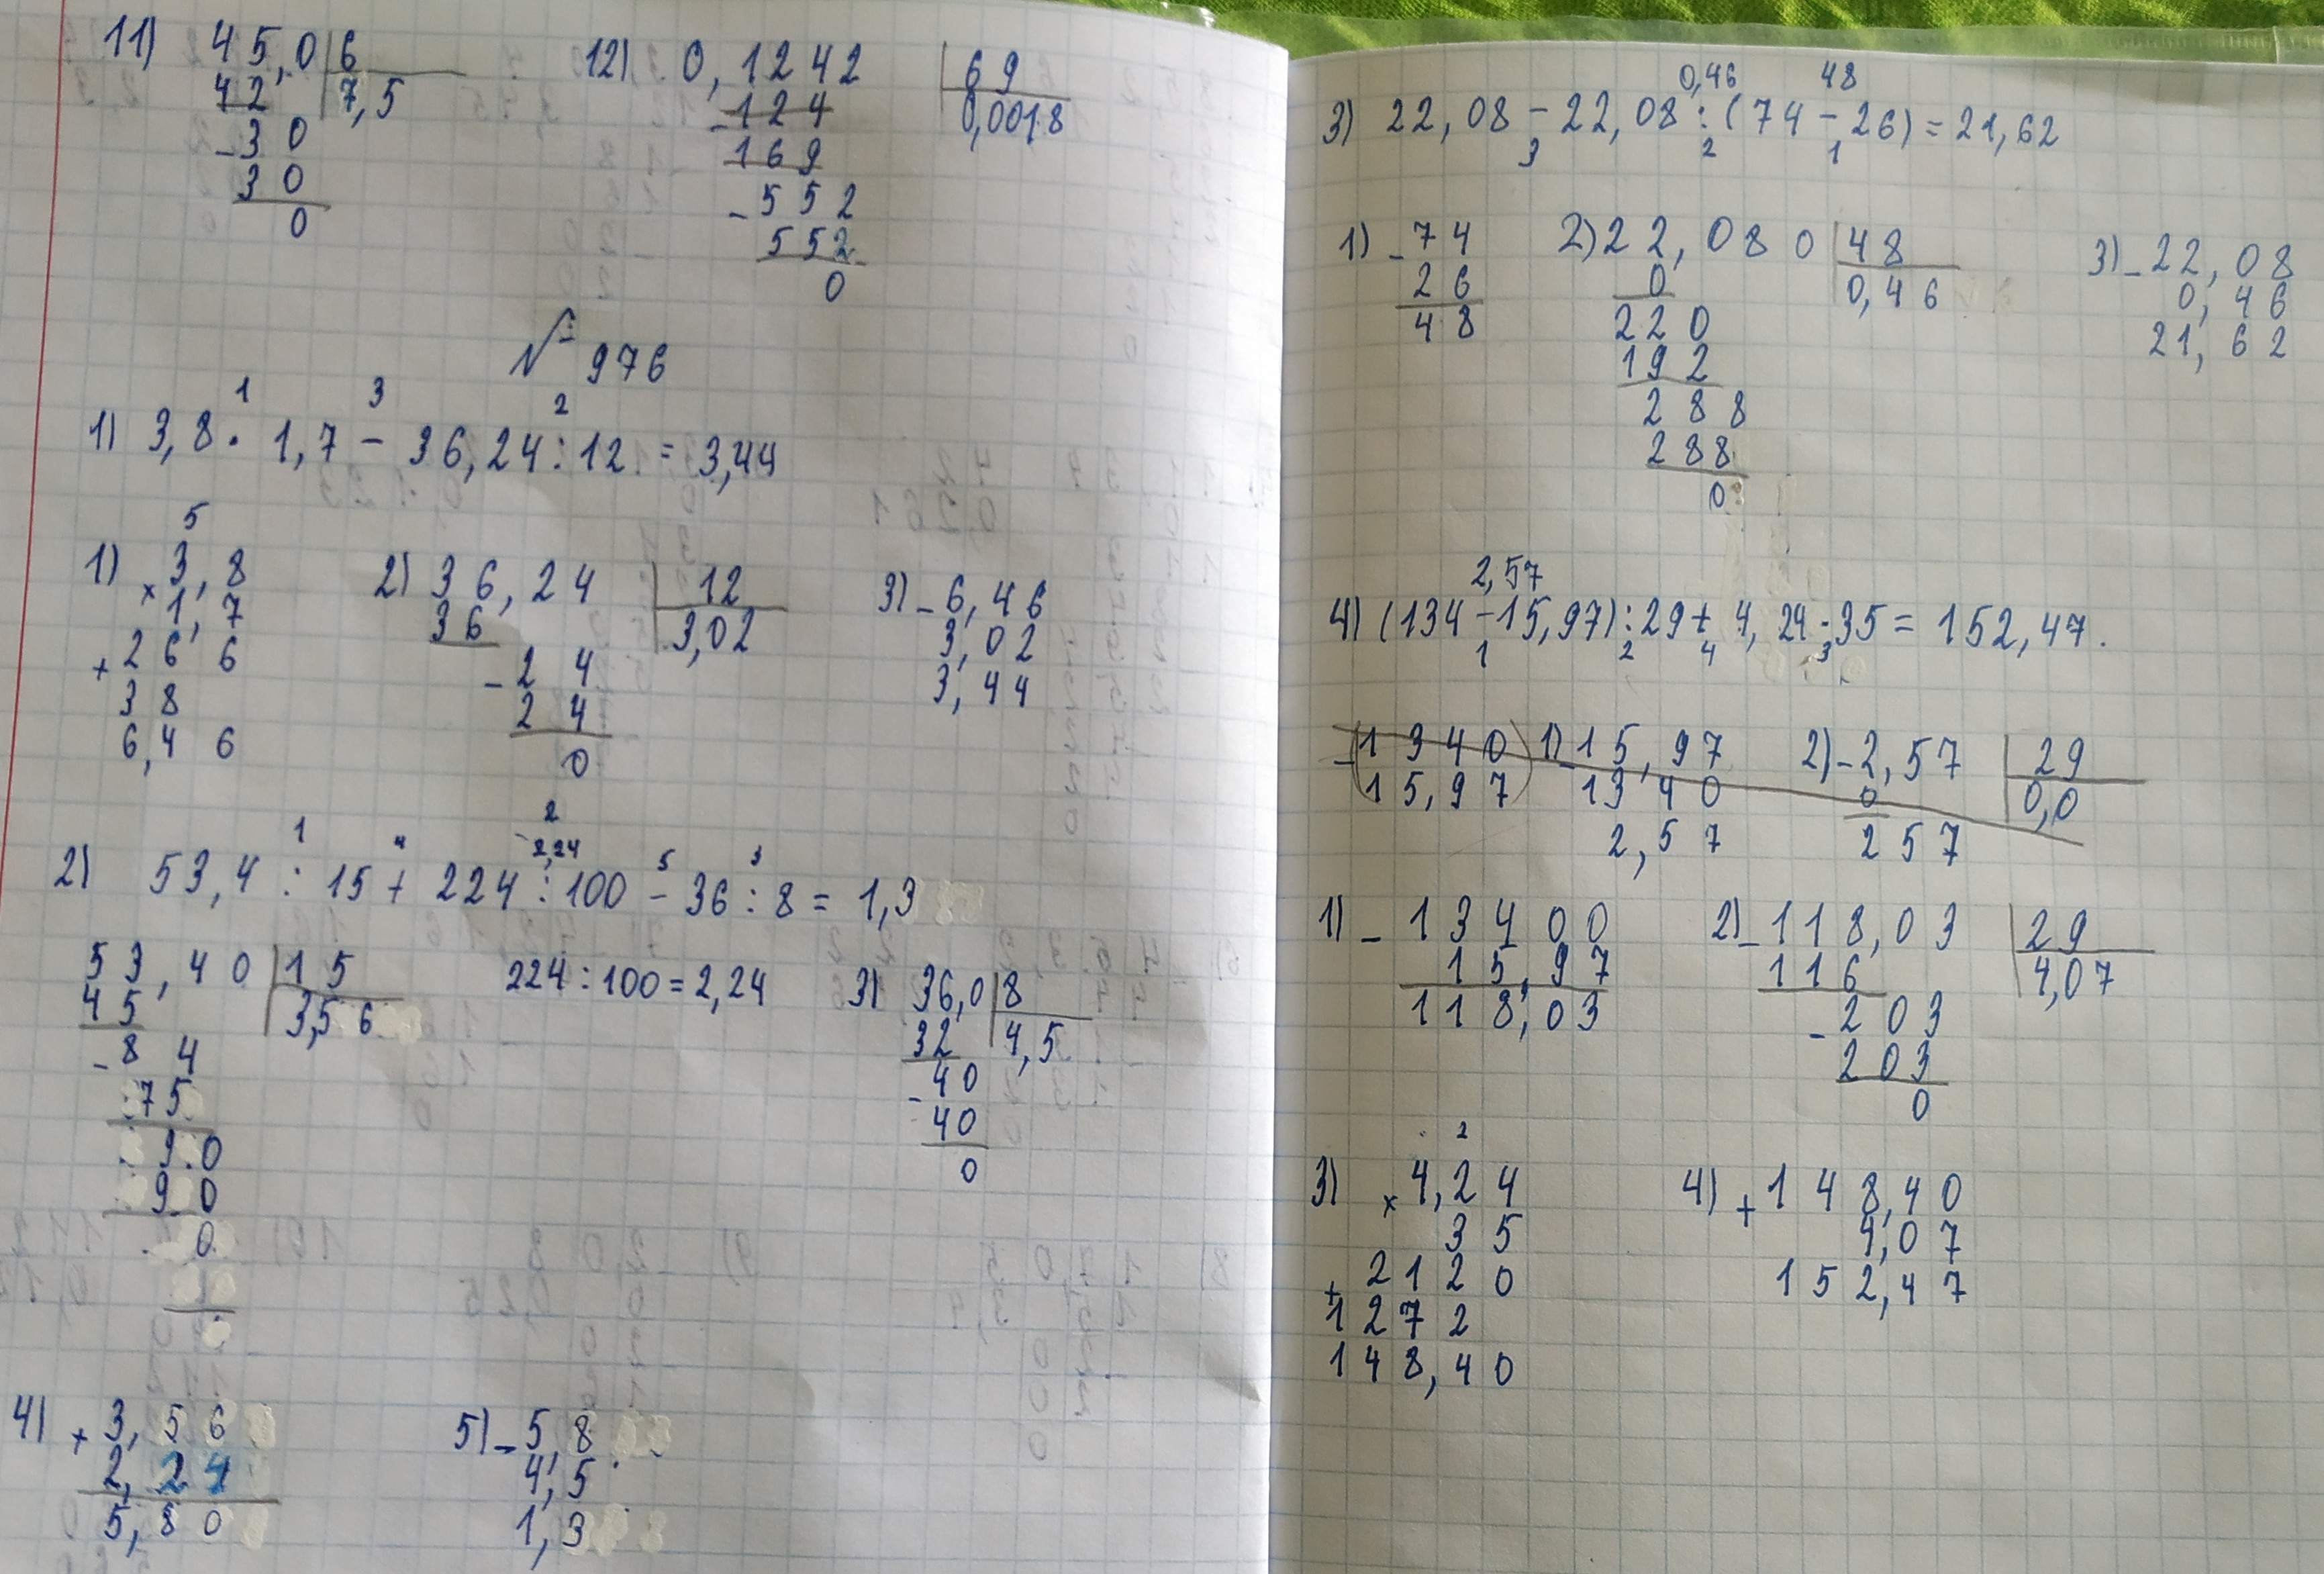 11) 45,0 6
42 7,5
-30
30
0
12) 0,1242 69
-124 0,0018
169
-552
552
0
№ 976
1 3 2
1) 3,8 · 1,7 - 36,24 : 12 = 3,44
5
1) × 3,8
1,7
+ 266
38
6,46
2) 36,24 12
36 3,02
- 24
24
0
3) - 6,46
3,02
3,44
2
1 4 2,24 5 3
2) 53,4 : 15 + 224 : 100 - 36 : 8 = 1,3
53,40 15
45 3,56
- 84
75
90
90
0
224 : 100 = 2,24
3) 36,0 8
32 4,5
- 40
40
0
4) + 3,56
2,24
5,80
5) - 5,8
4,5
1,3
0,46 48
3) 22,08 - 22,08 : (74 - 26) = 21,62
3 2 1
1) - 74
26
48
2) 22,080 48
0 0,46
220
192
288
288
0
3) - 22,08
0,46
21,62
2,57
4) (134 - 15,97) : 29 + 4,24 · 35 = 152,47.
1 2 4 3
- (1340)
15,97
1) - 15,97
1340
2,57
2) - 2,57 29
0 0,0
257
1) - 13400
15,97
118,03
2) - 118,03 29
116 4,07
- 203
203
0
2
3) × 4,24
35
+ 2120
1272
148,40
4) + 148,40
4,07
152,47